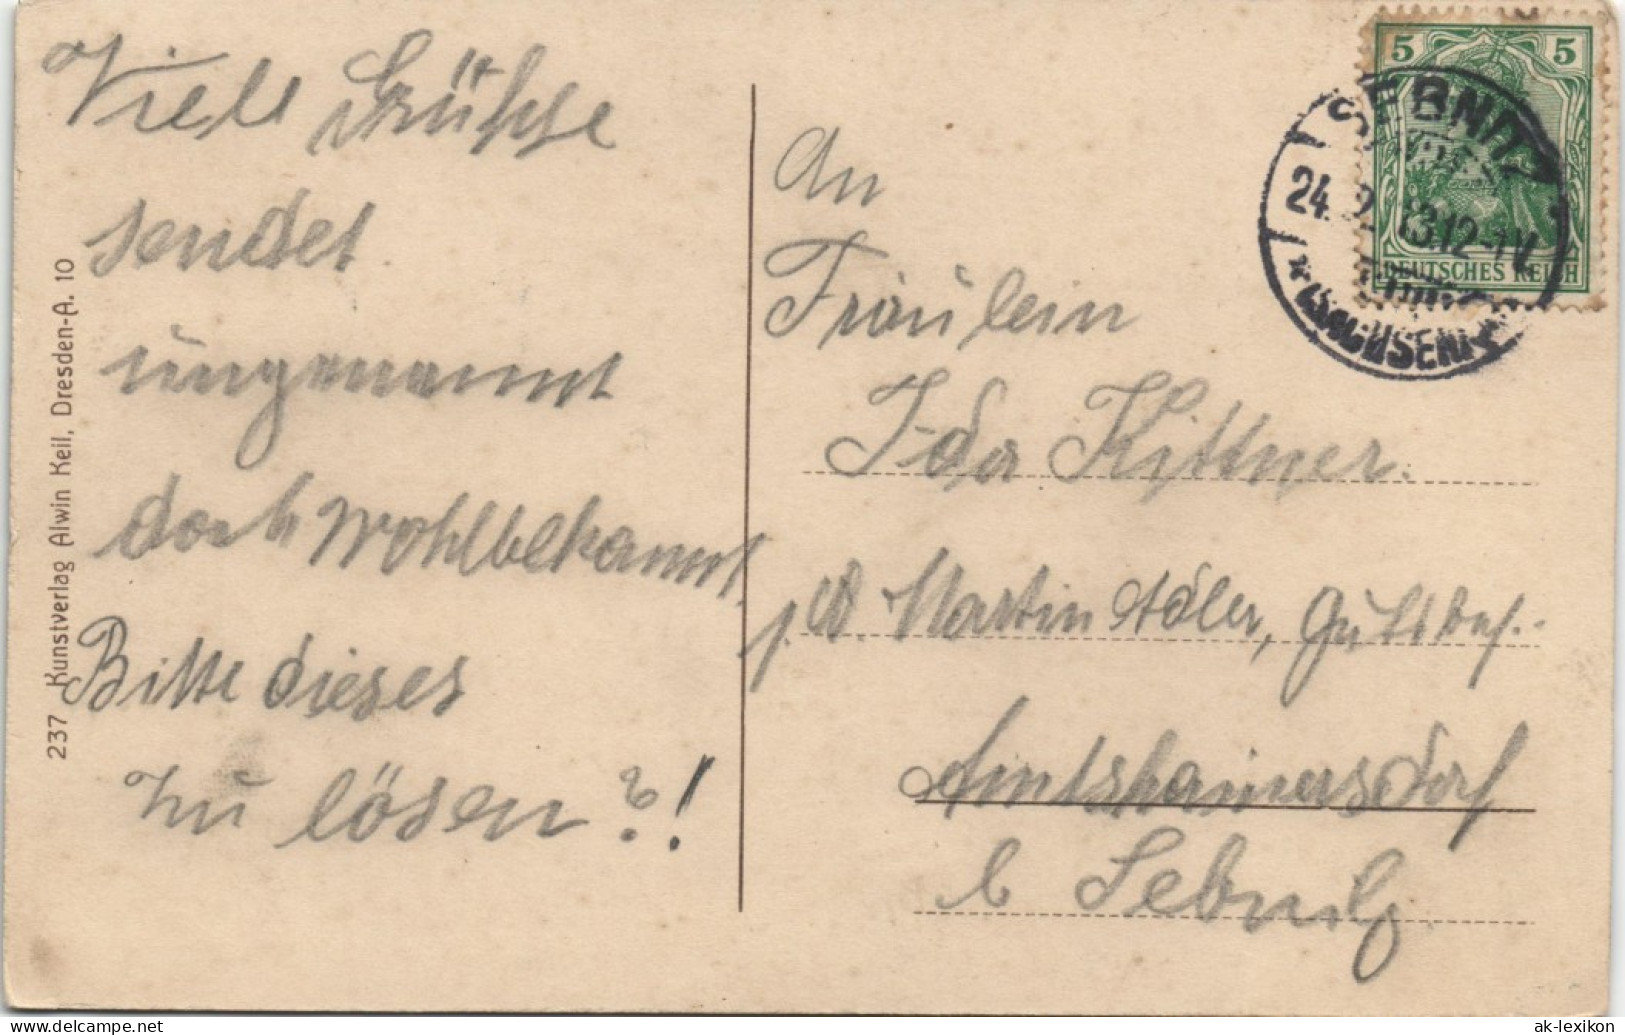 Viele Grüße
sendet
ungenannt
doch wohlbekannt.
Bitte dieses
zu lösen?!
237 Kunstverlag Alwin Keil, Dresden-A. 10
An
Fräulein
Ida Kittner.
Martin Adler, Gutsbes.
Amtshainersdorf
b Sebnitz
5 5
DEUTSCHES REICH
SEBNITZ
24. 2. 13. 12-1 V
* (SACHSEN) *
ak-lexikon